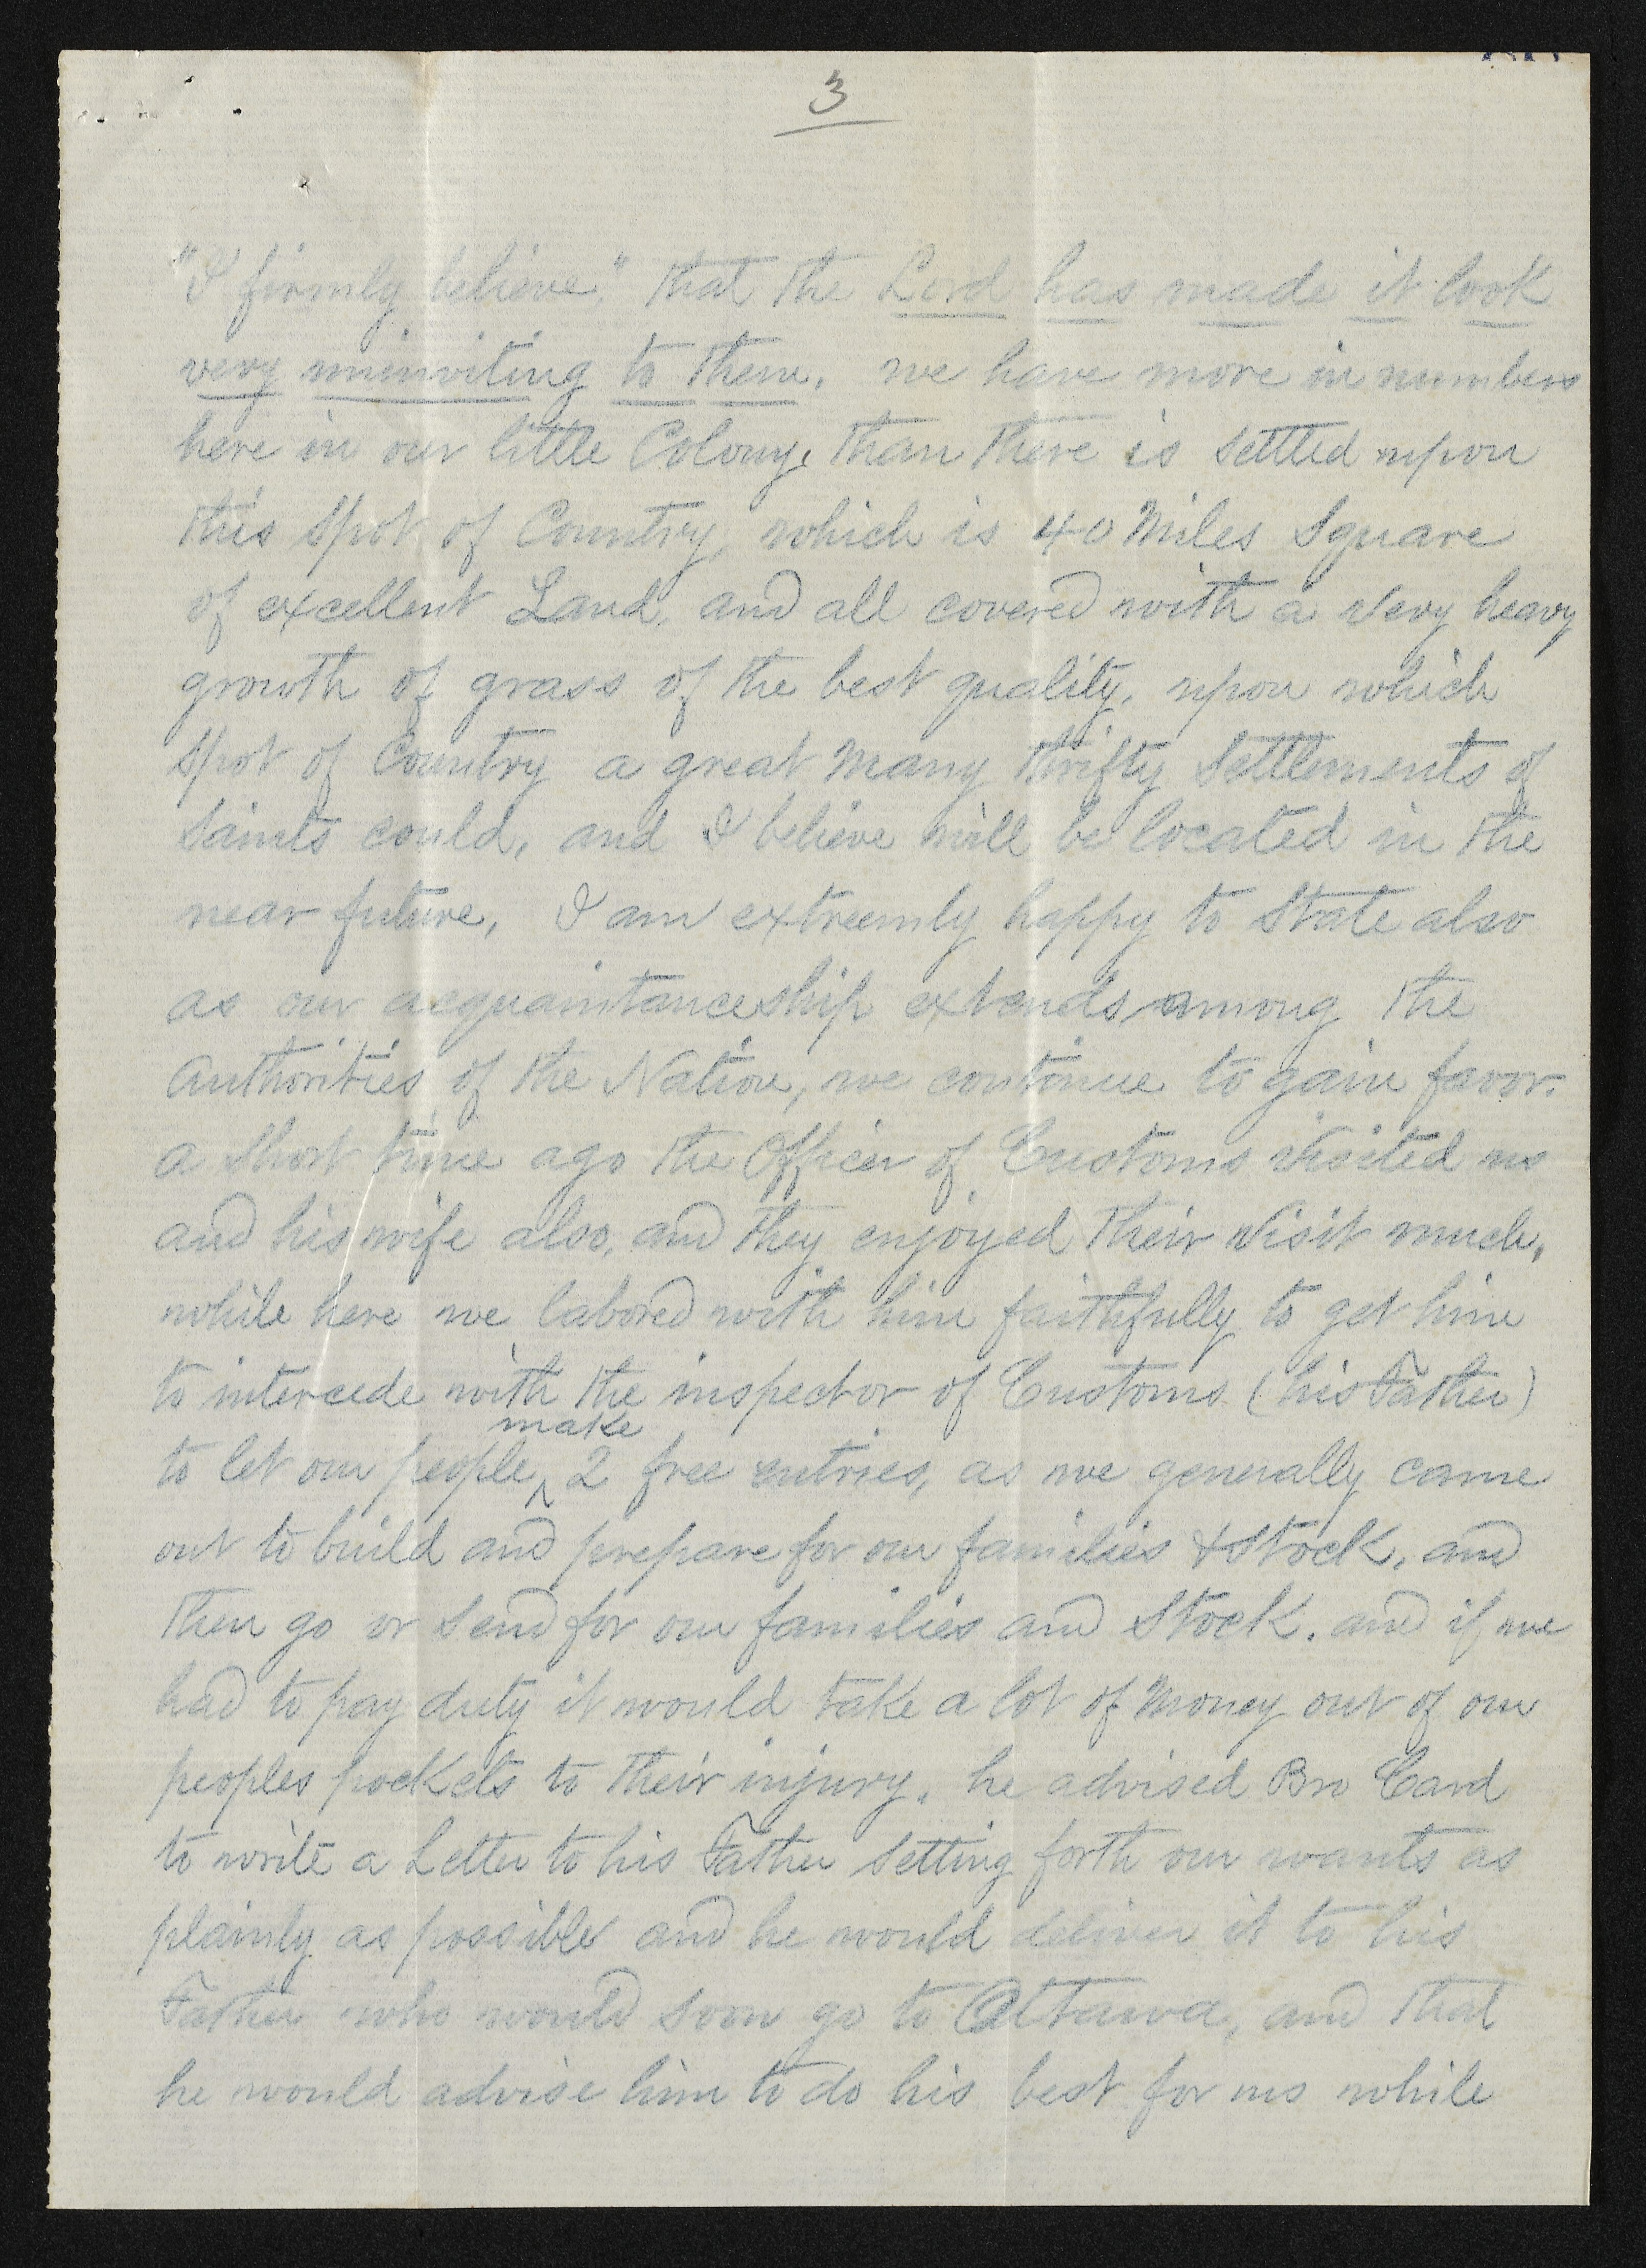 3
"I firmly believe." that the Lord has made it look
very uninviting to them. we have more in numbers
here in our little Colony. than there is settled upon
this spot of Country, which is 40 Miles Square
of excellent Land, and all covered with a very heavy
growth of grass of the best quality, upon which
spot of Country a great many thrifty Settlements of
Saints could, and I believe will be located in the
near future, I am extreemly happy to State also
as our acquaintanceship extends among the
Authorities of the Nation, we continue to gain favor.
a Short time ago the Officer of Customs visited us
and his wife also, and they enjoyed their visit much,
while here we labored with him faithfully to get him
to intercede with the inspector of Customs (his Father)
make
to let our people ^ 2 free entries, as we generally came
out to build and prepare for our families & Stock, and
then go or send for our families and Stock. and if we
had to pay duty it would take a lot of Money out of our
peoples pockets to their injury. he advised Bro Card
to write a Letter to his Father Setting forth our wants as
plainly as possible and he would deliver it to his
Father who would soon go to Ottawa, and that
he would advise him to do his best for us while